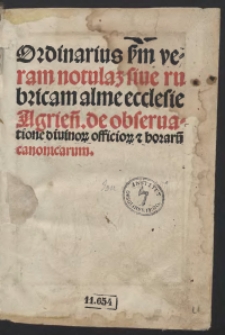 Ordinarius ẜm ve-
ram notulaʒ siue ru
bricam alme ecclesie
Agrieñ. de obserua-
tione diuinoꝝ officioꝝ ⁊ horarū
canonicarum.
11.634